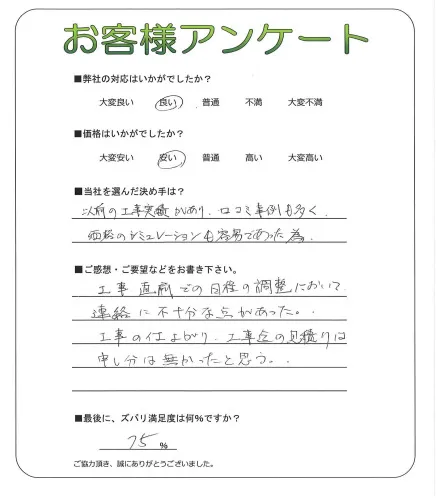 お客様アンケート
■弊社の対応はいかがでしたか？
大変良い 良い 普通 不満 大変不満
■価格はいかがでしたか？
大変安い 安い 普通 高い 大変高い
■当社を選んだ決め手は？
以前の工事実績があり、口コミ事例も多く、
価格のシミュレーションも容易であった為。
■ご感想・ご要望などをお書き下さい。
工事直前での日程の調整において
連絡に不十分な点があった。
工事の仕上がり、工事全の見積りは
申し分は無かったと思う。
■最後に、ズバリ満足度は何％ですか？
75 ％
ご協力頂き、誠にありがとうございました。